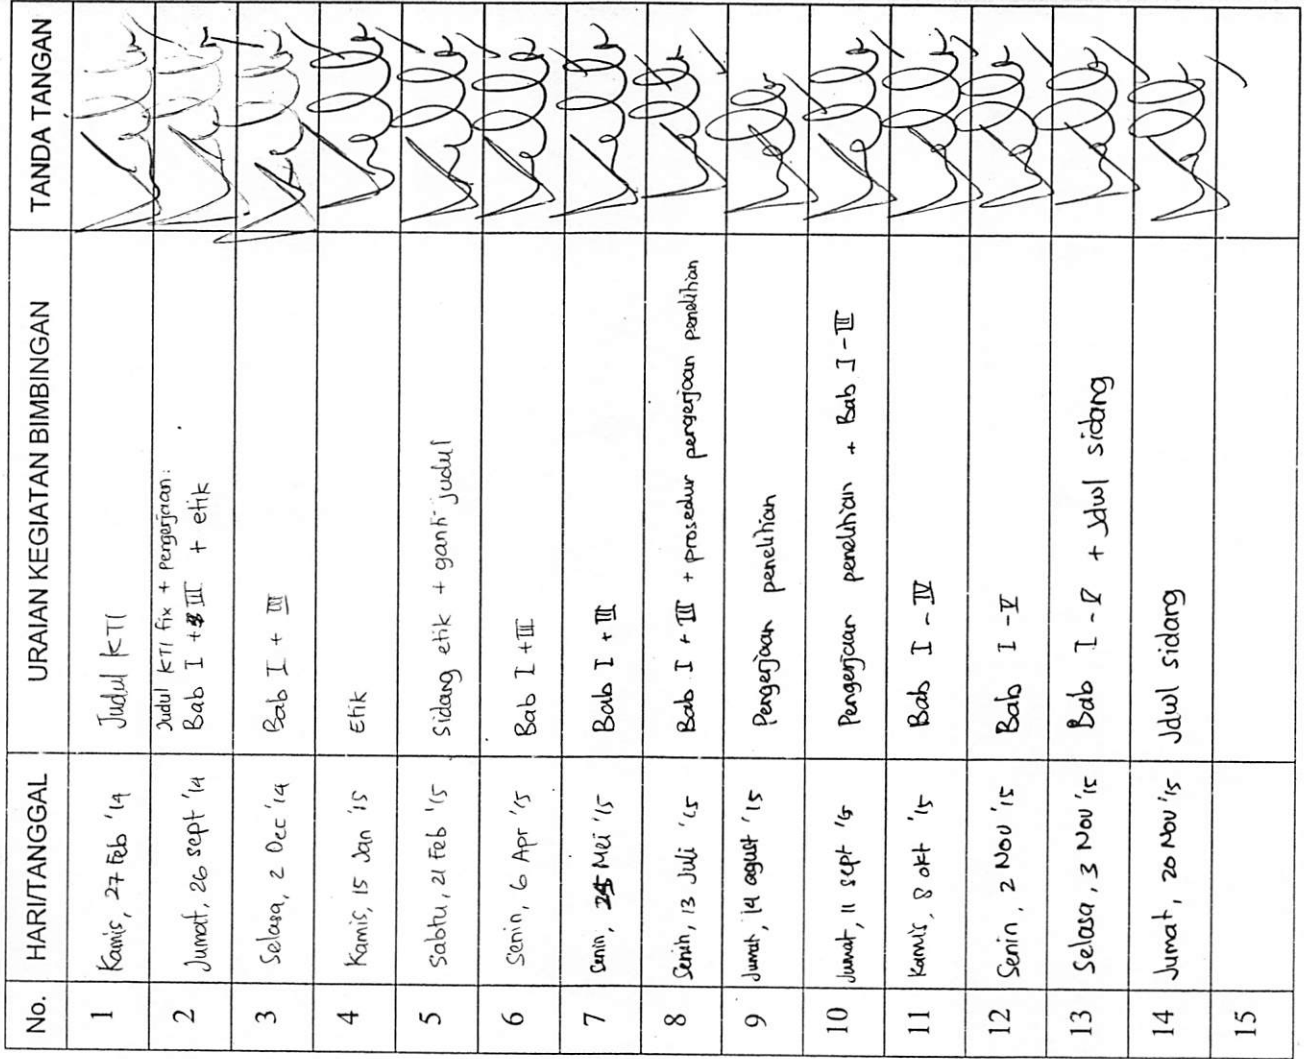 No. HARI/TANGGAL URAIAN KEGIATAN BIMBINGAN TANDA TANGAN
1 Kamis, 27 Feb '14 Judul KTI
2 Jumat, 26 sept '14 Judul KTI fix + Pengerjaan:
Bab I + III + etik
3 Selasa, 2 Dec '14 Bab I + III
4 Kamis, 15 Jan '15 Etik
5 Sabtu, 21 Feb '15 Sidang etik + ganti judul
6 Senin, 6 Apr '15 Bab I + III
7 Senin, Mei '15 Bab I + III
8 Senin, 13 Juli '15 Bab I + III + prosedur pengerjaan penelitian
9 Jumat, 14 agust '15 Pengerjaan penelitian
10 Jumat, 11 sept '15 Pengerjaan penelitian + Bab I - III
11 Kamis, 8 okt '15 Bab I - IV
12 Senin, 2 Nov '15 Bab I - V
13 Selasa, 3 Nov '15 Bab I - V + Jdwl sidang
14 Jumat, 20 Nov '15 Jdwl sidang
15